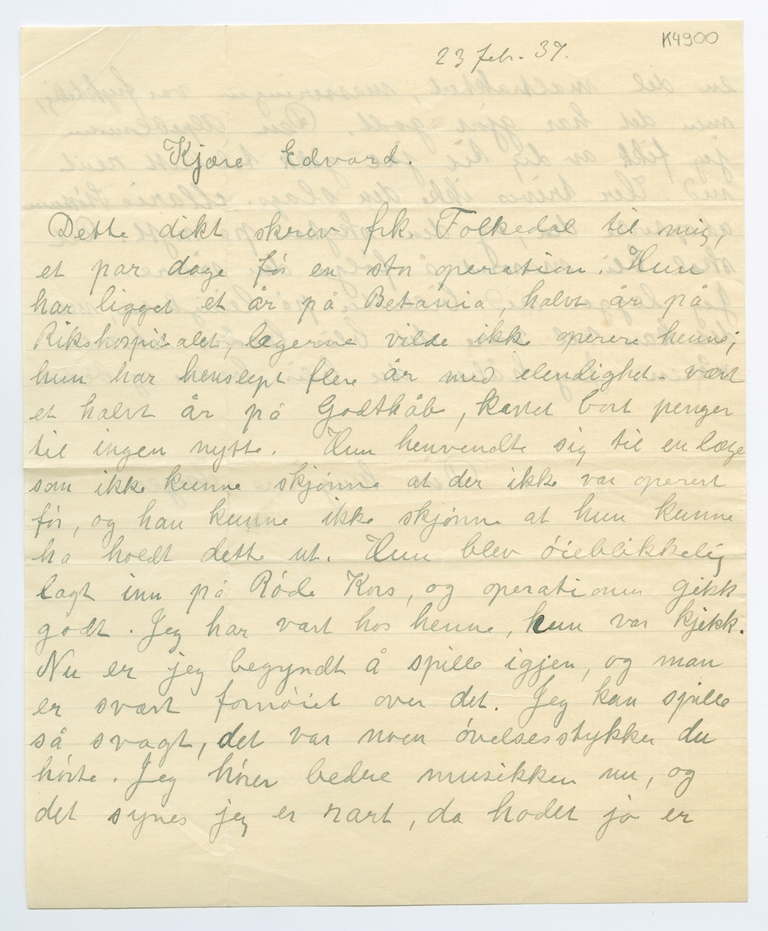 K4900
23 feb. 37.
Kjære Edvard.
Dette dikt skrev frk. Folkedal til mig,
et par dage før en stor operation. Hun
har ligget et år på Betania, halvt år på
Rikshospitalet, lægerne vilde ikke operere henne;
hun har henslept flere år med elendighet. vært
et halvt år på Godthåb, kastet bort penger
til ingen nytte. Hun henvendte sig til en læge
som ikke kunne skjønne at der ikke var operert
før, og han kunne ikke skjønne at hun kunne
ha holdt dette ut. Hun blev øieblikkelig
lagt inn på Røde Kors, og operationen gikk
godt. Jeg har vært hos henne, hun var kjekk.
Nu er jeg begyndt å spille igjen, og man
er svært fornøiet over det. Jeg kan spille
så svagt, det var noen øvelsesstykker du
hørte. Jeg hører bedre musikken nu, og
det synes jeg er rart, da hodet jo er